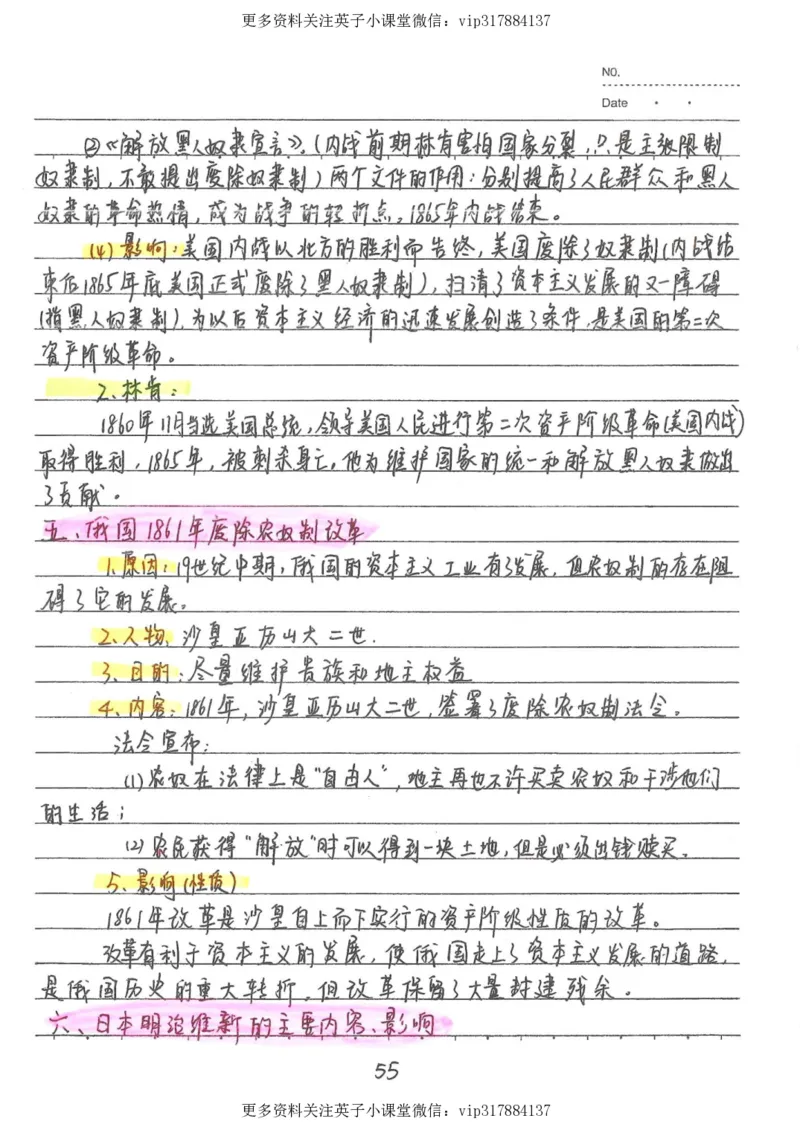 更多资料关注英子小课堂微信：vip317884137
NO.
Date
②《解放黑人奴隶宣言》。(内战前期林肯害怕国家分裂,只是主张限制
奴隶制,不敢提出废除奴隶制)两个文件的作用:分别提高了人民群众和黑人
奴隶的革命热情,成为战争的转折点。1865年内战结束。
(4)影响:美国内战以北方的胜利而告终,美国废除了奴隶制(内战结
束后1865年底美国正式废除了黑人奴隶制),扫清了资本主义发展的又一障碍
(指黑人奴隶制),为以后资本主义经济的迅速发展创造了条件,是美国的第二次
资产阶级革命。
2、林肯:
1860年11月当选美国总统,领导美国人民进行第二次资产阶级革命(美国内战)
取得胜利,1865年,被刺杀身亡。他为维护国家的统一和解放黑人奴隶做出
了贡献。
五、俄国1861年废除农奴制改革
1、原因:19世纪中期,俄国的资本主义工业有了发展,但农奴制的存在阻
碍了它的发展。
2、人物、沙皇亚历山大二世.
3、目的:尽量维护贵族和地主权益
4、内容:1861年,沙皇亚历山大二世,签署了废除农奴制法令。
法令宣布:
(1)农奴在法律上是“自由人”,地主再也不许买卖农奴和干涉他们
的生活;
(2)农民获得“解放”时可以得到一块土地,但是必须出钱赎买。
5、影响(性质)
1861年改革是沙皇自上而下实行的资产阶级性质的改革。
改革有利于资本主义的发展,使俄国走上了资本主义发展的道路,
是俄国历史的重大转折,但改革保留了大量封建残余。
六、日本明治维新的主要内容、影响
55
更多资料关注英子小课堂微信：vip317884137